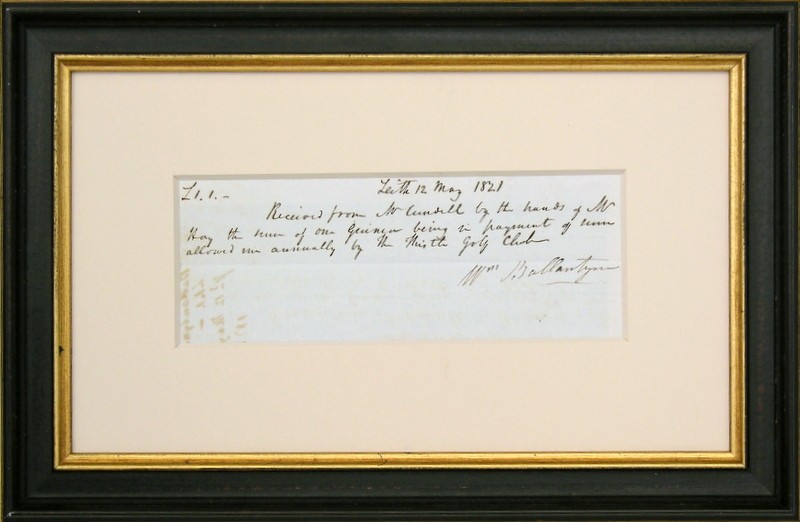 £1.1.-
Leith 12 May 1821
Received from Mr Cundell by the hands of Mr
Hay the sum of one Guinea being in payment of sum
allowed me annually by the Thistle Golf Club
Wm Ballantyne